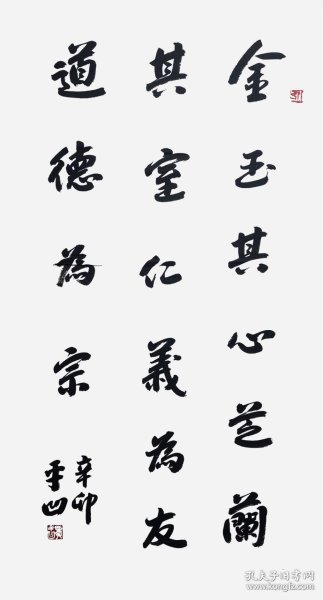 金玉其心芝蘭
其室仁義為友
道德為宗
辛卯
平凹
孔夫子旧书网